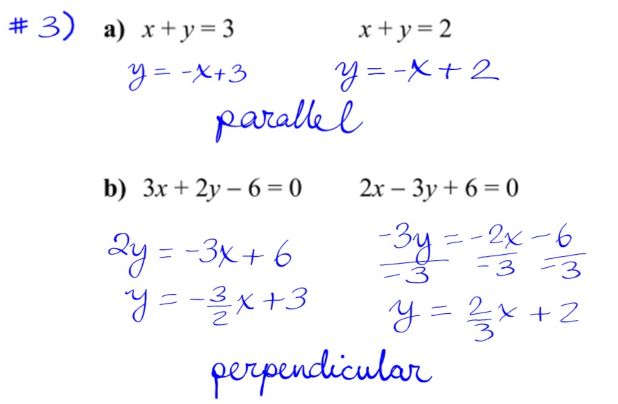 # 3) a) x + y = 3 x + y = 2
y = -x+3 y = -x + 2
parallel
b) 3x + 2y – 6 = 0 2x – 3y + 6 = 0
2y = -3x + 6 -3y/-3 = -2x/-3 -6/-3
y = -3/2 x + 3 y = 2/3 x + 2
perpendicular